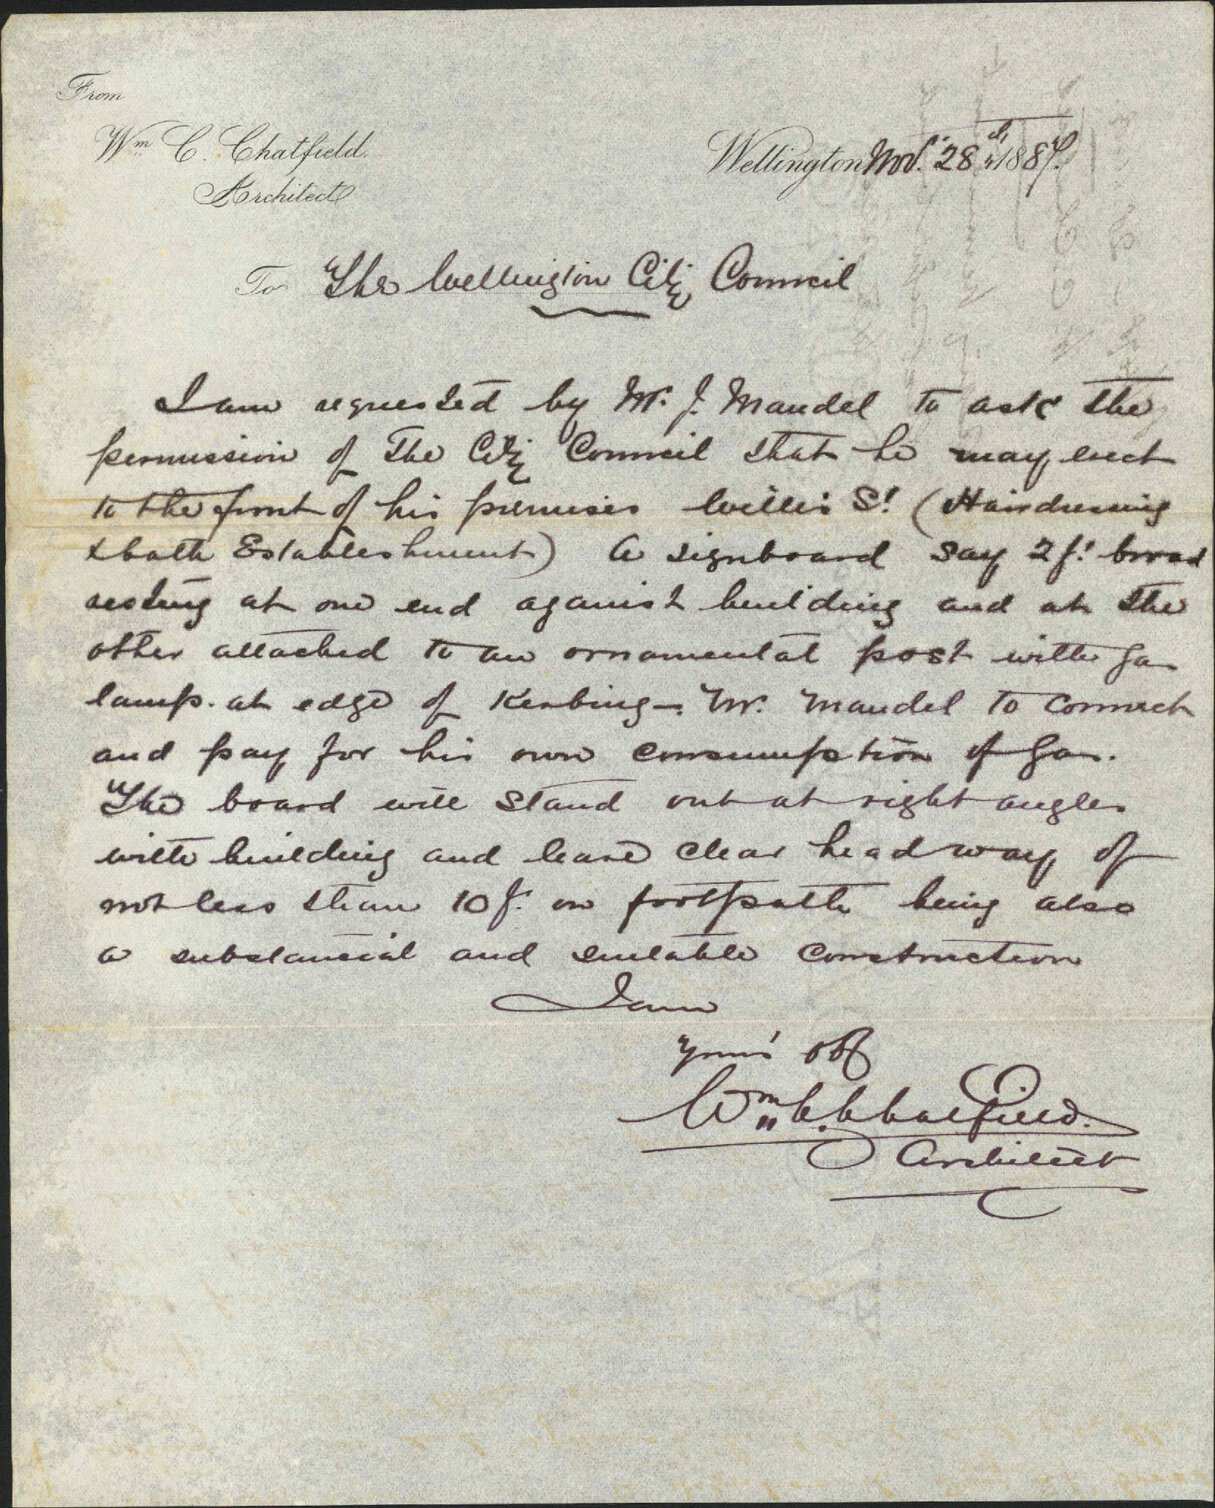 From
Wm C. Chatfield.
Architect
Wellington Nov. 28th 1887.
To The Wellington City Council
I am requested by Mr. J. Mandel to ask the
permission of the City Council that he may erect
to the front of his premises Willis St (Hairdressing
& bath Establishment) a signboard say 2 ft broad
resting at one end against building and at the
other attached to an ornamental post with Gas
lamp. at edge of Kerbing - Mr. Mandel to connect
and pay for his own consumption of Gas.
The board will stand out at right angles
with building and leave clear headway of
not less than 10 f. on footpath being also
a substancial and suitable construction
I am
Yours obt
Wm C. Chatfield.
Architect